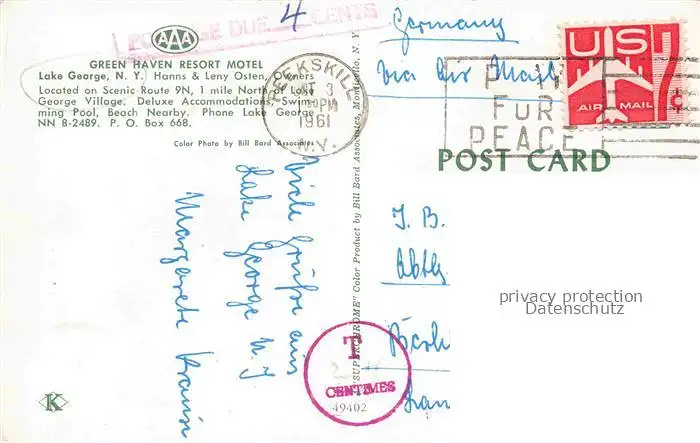 POSTAGE DUE 4 CENTS
AAA
GREEN HAVEN RESORT MOTEL
Lake George, N. Y. Hanns & Leny Osten, Owners
Located on Scenic Route 9N, 1 mile North of Lake
George Village. Deluxe Accommodations, Swim-
ming Pool, Beach Nearby. Phone Lake George
NN 8-2489. P. O. Box 668.
Color Photo by Bill Bard Associates
PEEKSKILL
3
PM
1961
N.Y.
Germany
via Air Mail
P Y
FOR
PEACE
US
AIR MAIL
¢
POST CARD
"SUPERCHROME" Color Product by Bill Bard Associates, Monticello, N. Y.
Viele Grüße aus
Lake George N.Y.
Margarete
J. B.
Abtlg
privacy protection
Datenschutz
T
CENTIMES
49402
K